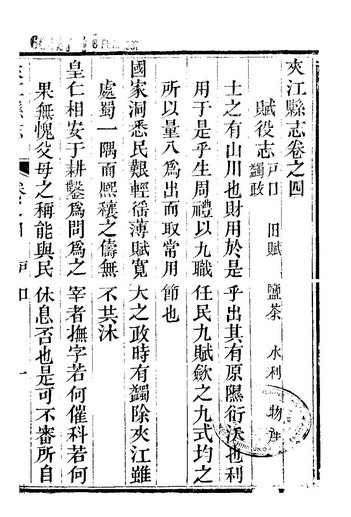 夾江縣志卷之四
賦役志 戶口 舊賦 鹽茶 水利 物產 蠲政
土之有山川也財用於是乎出其有原隰衍沃也利
用于是乎生周禮以九職任民九賦斂之九式均之
所以量入爲出而取常用節也
國家洞悉民艱輕徭薄賦寬大之政時有蠲除夾江雖
處蜀一隅而熙穰之儔無不共沐
皇仁相安于耕鑿爲問爲之宰者撫字若何催科若何
果無愧父母之稱能與民休息否也是可不審所自
夾江縣志 卷之四 戶口 一